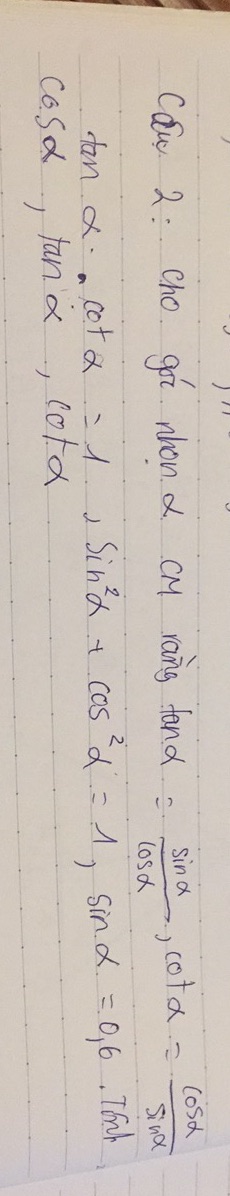 Câu 2: Cho góc nhọn α CM rằng tanα = sinα/cosα, cotα = cosα/sinα
tan α . cot α = 1, sin²α + cos²α = 1, sin α = 0,6. Tính
cosα, tanα, cotα